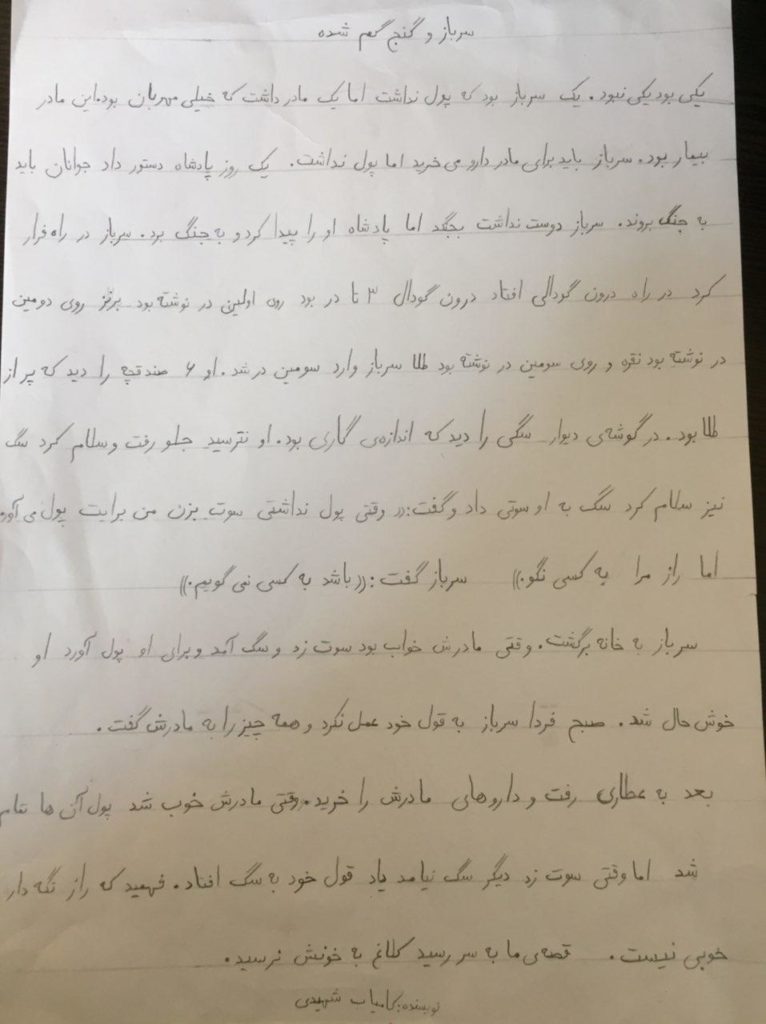 سرباز و گنج گم شده
یکی بود یکی نبود. یک سرباز بود که پول نداشت اما یک مادر داشت که خیلی مهربان بود. این مادر
بیمار بود. سرباز باید برای مادر دارو می خرید اما پول نداشت. یک روز پادشاه دستور داد جوانان باید
به جنگ بروند. سرباز دوست نداشت بجگد اما پادشاه او را پیدا کرد و به جنگ برد. سرباز در راه فرار
کرد در راه درون گودالی افتاد درون گودال ۳ تا در بود روی اولین در نوشته بود برنز روی دومین
در نوشته بود نقره و روی سومین در نوشته بود طلا سرباز وارد سومین در شد. او ۶ صندقچه را دید که پر از
طلا بود. در گوشه‌ی دیوار سگی را دید که اندازه‌ی گاری بود. او نترسید جلو رفت و سلام کرد سگ
نیز سلام کرد سگ به او سوتی داد و گفت:(( وقتی پول نداشتی سوت بزن من برایت پول می آورم
اما راز مرا به کسی نگو.)) سرباز گفت:((باشد به کسی نمی گویم.))
سرباز به خانه برگشت. وقتی مادرش خواب بود سوت زد و سگ آمد و برای او پول آورد او
خوش حال شد. صبح فردا سرباز به قول خود عمل نکرد و همه چیز را به مادرش گفت.
بعد به عطاری رفت و داروهای مادرش را خرید. وقتی مادرش خوب شد پول آن ها تمام
شد اما وقتی سوت زد دیگر سگ نیامد یاد قول خود به سگ افتاد. فهمید که راز نگه دار
خوبی نیست. قصه‌ی ما به سر رسید کلاغ به خونش نرسید.
نویسنده: کامیاب شهیدی